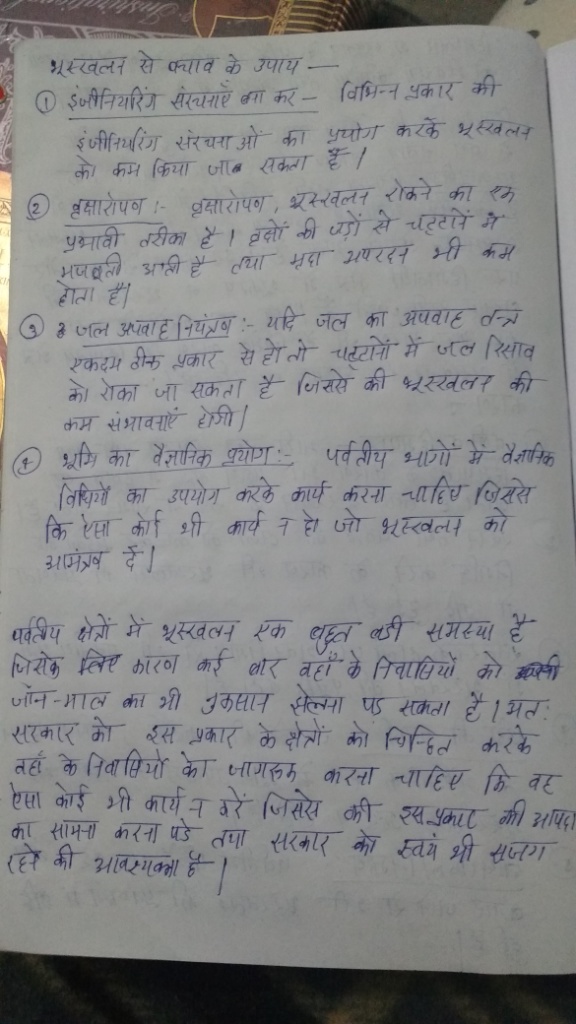 भूस्खलन से बचाव के उपाय —
① इंजीनियरिंग संरचनाएँ बना कर — विभिन्न प्रकार की
इंजीनियरिंग संरचनाओं का प्रयोग करके भूस्खलन
को कम किया जा सकता है।
② वृक्षारोपण :- वृक्षारोपण, भूस्खलन रोकने का एक
प्रभावी तरीका है। वृक्षों की जड़ों से चट्टानों में
मजबूती आती है तथा मृदा अपरदन भी कम
होता है।
③ जल अपवाह नियंत्रण :- यदि जल का अपवाह तन्त्र
एकदम ठीक प्रकार से हो तो चट्टानों में जल रिसाव
को रोका जा सकता है जिससे की भूस्खलन की
कम संभावनाएँ होगी।
④ भूमि का वैज्ञानिक प्रयोग :- पर्वतीय भागों में वैज्ञानिक
विधियों का उपयोग करके कार्य करना चाहिए जिससे
कि ऐसा कोई भी कार्य न हो जो भूस्खलन को
आमंत्रण दें।
पर्वतीय क्षेत्रों में भूस्खलन एक बहुत बडी समस्या है
जिसके कारण कई बार वहाँ के निवासियों को
जॉन-माल का भी नुकसान झेलना पड सकता है। अत:
सरकार को इस प्रकार के क्षेत्रों को चिन्हित करके
वहाँ के निवासियों को जागरूक करना चाहिए कि वह
ऐसा कोई भी कार्य न करें जिससे की इस प्रकार की आपदा
का सामना करना पडे तथा सरकार को स्वयं भी सजग
रहने की आवश्यकता है।